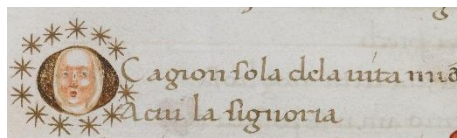 O Cagion sola dela uita
Acui la signoria